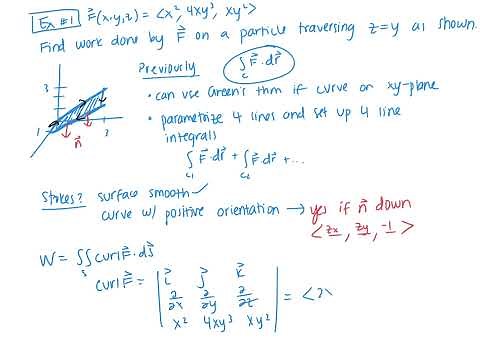 Ex #1 F(x,y,z) = <x², 4xy³, xy²>
Find work done by F on a particle traversing z=y as shown.
Previously ∫_C F·dr
• can use Green's thm if curve on xy-plane
• parametrize 4 lines and set up 4 line
integrals
∫_C1 F·dr + ∫_C2 F·dr + ...
3
1
3
n
Stokes? surface smooth ✓
curve w/ positive orientation → yes if n down
<zx, zy, -1>
W = ∫∫_S curl F · dS
curl F = | i j k |
∂/∂x ∂/∂y ∂/∂z = <2x
x² 4xy³ xy²